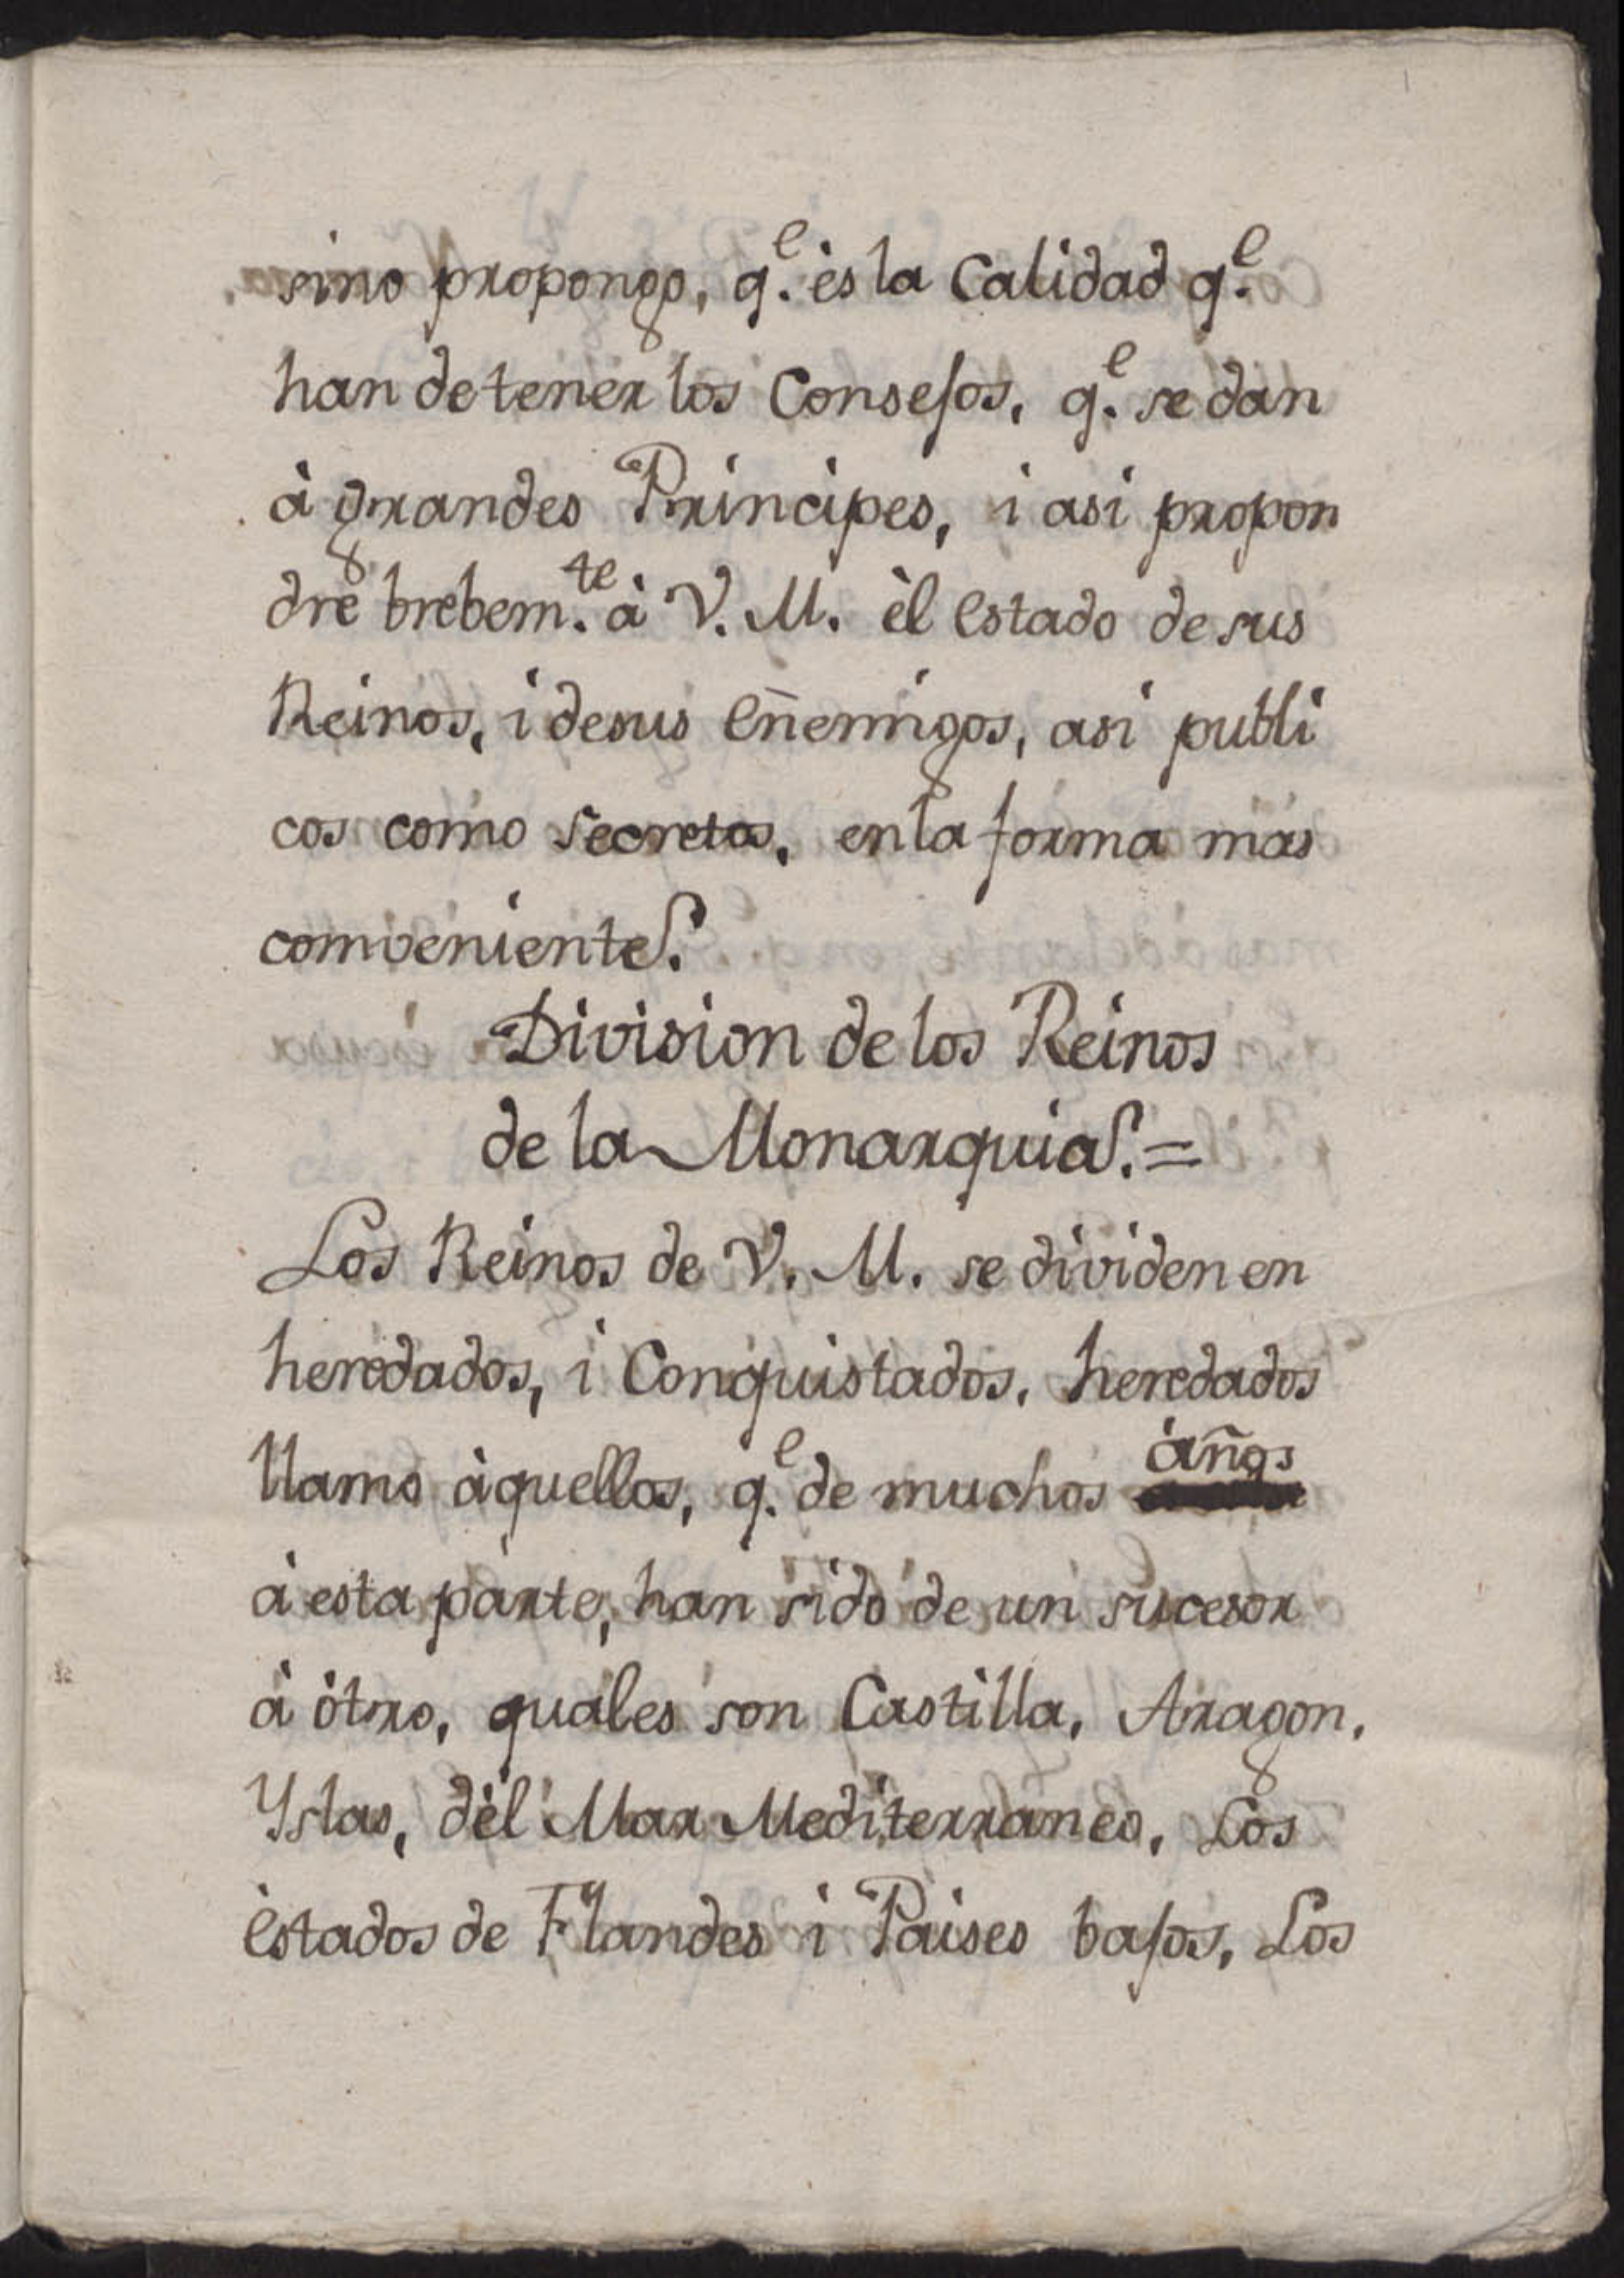 sino propongo, q.e ès la Calidad q.e
han de tener los Consejos, q.e se dan
à grandes Principes, i asi propon
dre brebem.te à V. M. èl estado de sus
Reinos, i de sus Eñemigos, asi publi
cos como secretos, en la forma mas
comveniente.
Division de los Reinos
de la Monarquia. =
Los Reinos de V. M. se dividen en
heredados, i Conquistados, heredados
llamo àquellos, q.e de muchos àños
à esta parte, han sido de un sucesor
à òtro, quales son Castilla, Aragon,
Yslas, dèl Mar Mediterraneo, Los
Estados de Flandes i Paises bajos, Los